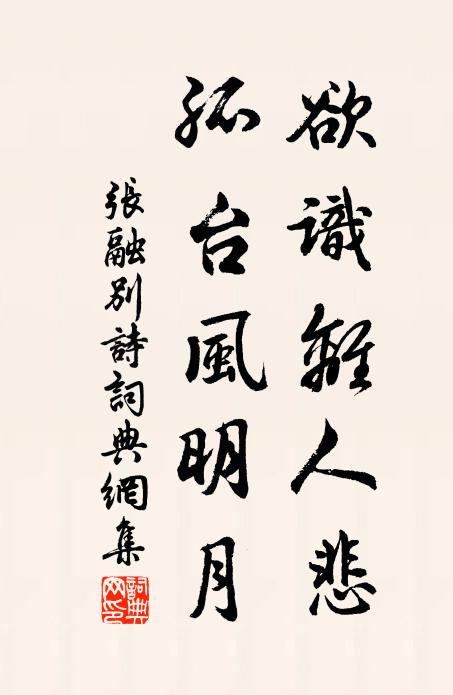 欲識離人悲
孤台風明月
張融別詩詞典網集
詞典網印